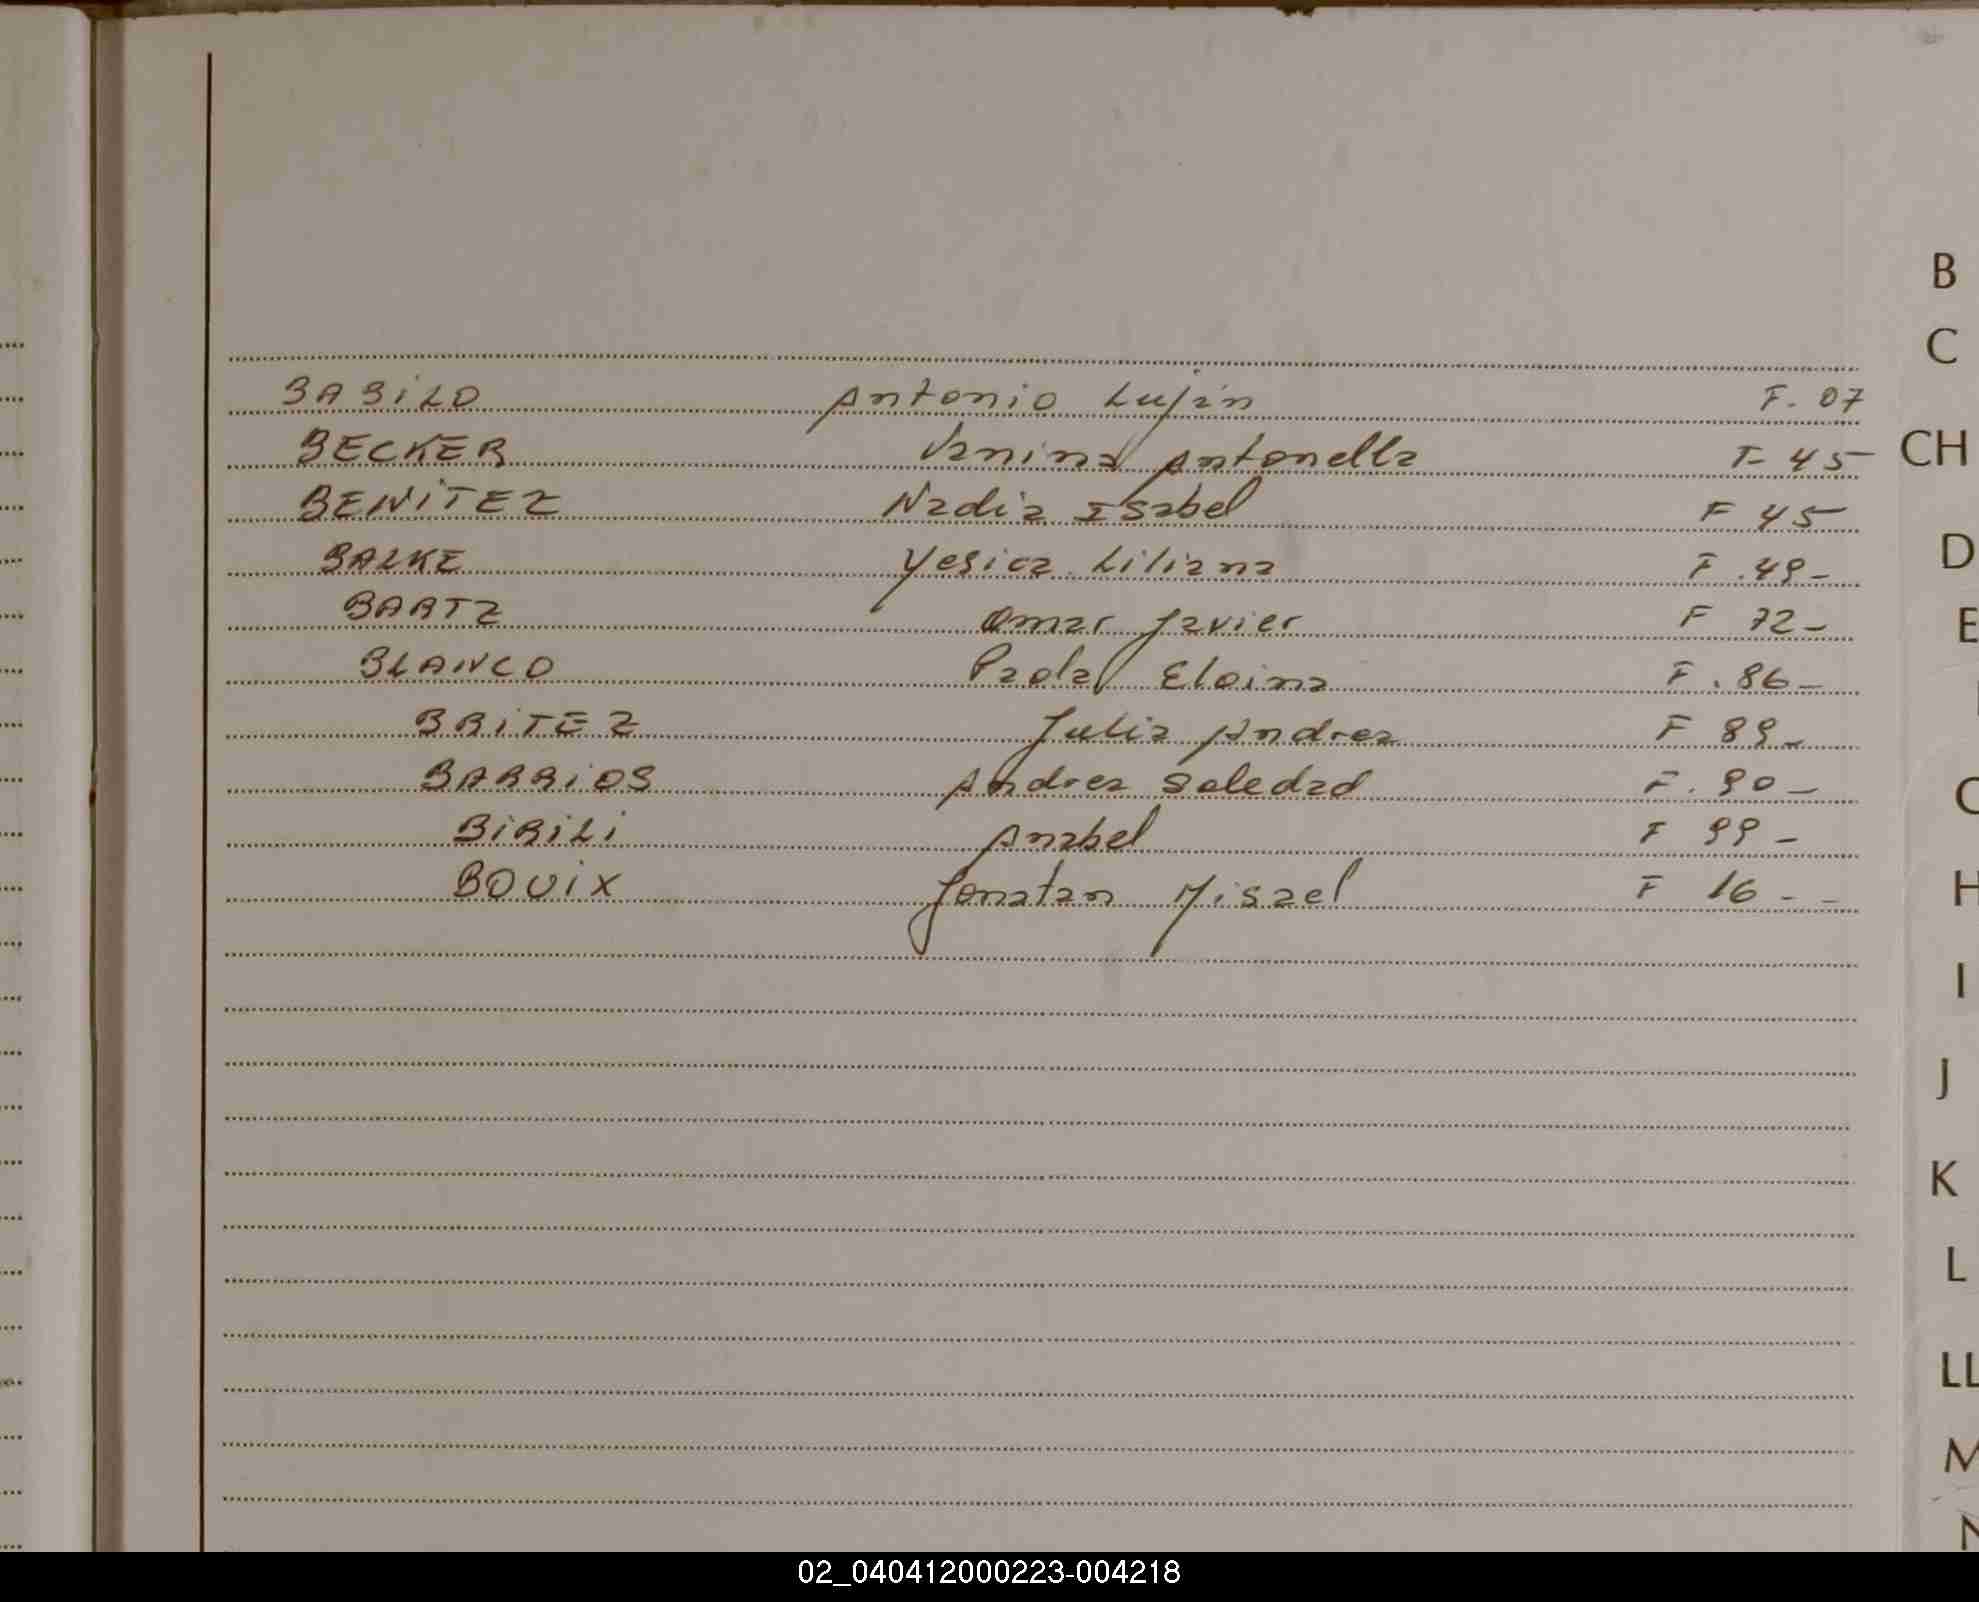 BABILO Antonio Luján F. 07
BECKER Vanina Antonella F- 45
BENITEZ Nadia Isabel F 45
BALKE Yesica Liliana F. 49-
BARTZ Omar Javier F 72-
BLANCO Paola Eloina F. 86-
BRITEZ Julia Andrea F 89-
BARRIOS Andrea Soledad F. 90-
BIBILI Anabel F 99-
BOUIX Jonatan Misael F 16 - -
B
C
CH
D
E
H
I
J
K
L
LL
M
N
02_040412000223-004218